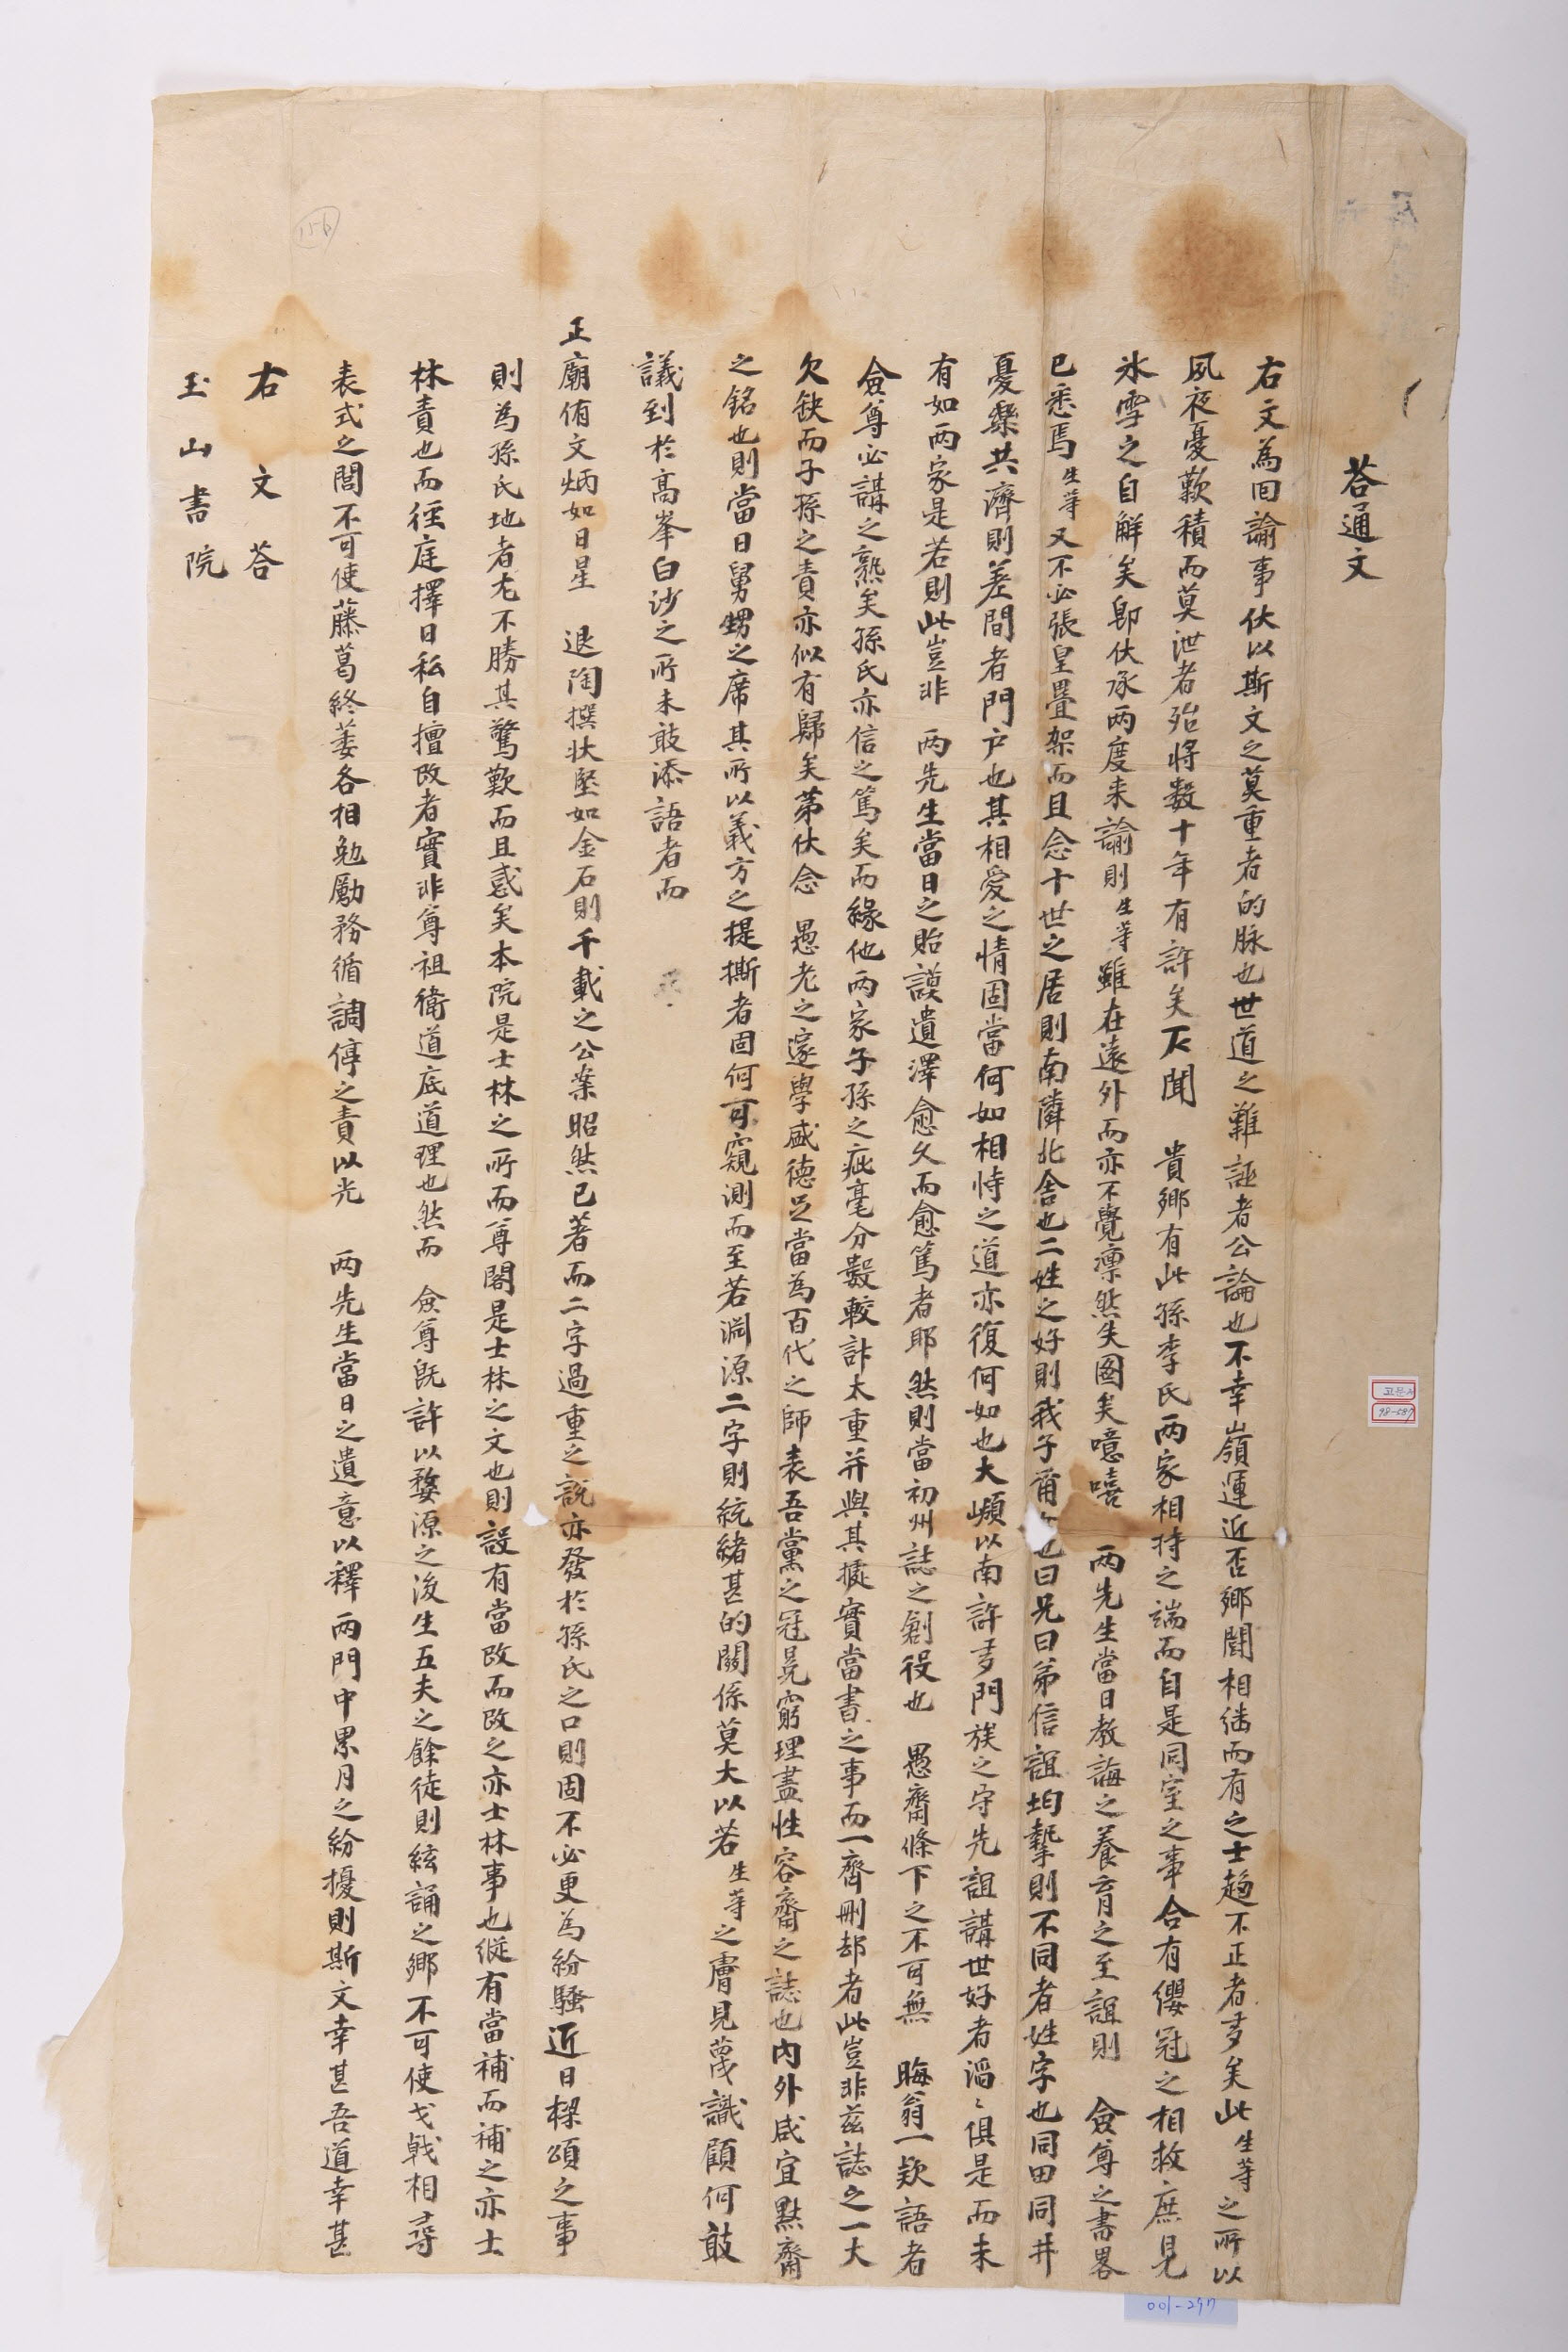 答通文
右文為回諭事伏以斯文之莫重者的脉也世道之難誣者公論也不幸嶺運近否鄉閭相繼而有之士趍不正者多矣此生等之所以
夙夜憂歎積而莫泄者殆將數十年有許矣不聞 貴鄉有此孫李氏兩家相持之端而自是同室之事合有纓冠之相救庶見
氷雪之自解矣卽伏承兩度來諭則生等雖在遠外而亦不覺凜然失圖矣噫嘻 兩先生當日教誨之養育之至誼則 僉尊之書畧
已悉焉生等又不必張皇疊架而且念十世之居則南隣北舍也二姓之好則我子甭 也曰兄曰弟信誼均摯則不同者姓字也同田同井
憂樂共濟則差間者門户也其相愛之情固當何如相恃之道亦復何如也大嶺以南許多門族之守先誼講世好者滔〻俱是而未
有如兩家是若則此豈非 兩先生當日之貽謨遺澤愈久而愈篤者耶然則當初州誌之創役也 愚齋條下之不可無 晦翁一欵語者
僉尊必講之熟矣孫氏亦信之篤矣而緣他兩家子孫之疵毫分數較計太重并與其摭實當書之事而一齊刪却者此豈非玆誌之一大
欠缺而子孫之責亦似有歸矣第伏念 愚老之邃學盛德足當為百代之師表吾黨之冠冕窮理盡性容齋之誌也內外咸宜默齋
之銘也則當日舅甥之席其所以義方之提撕者固何可窺測而至若淵源二字則統緖甚的關係莫大以若生等之膚見蔑識顧何敢
議到於高峯白沙之所未敢添語者而
正廟侑文炳如日星 退陶撰狀堅如金石則千載之公案昭然已著而二字過重之說亦發於孫氏之口則固不必更為紛騷近日樑頌之事
則為孫氏地者尤不勝其驚歎而且惑矣本院是士林之所而尊閣是士林之文也則設有當改而改之亦士林事也縱有當補而補之亦士
林責也而徃庭擇日私自擅改者實非尊祖衛道底道理也然而 僉尊旣許以婺源之後生五夫之餘徒則絃誦之鄉不可使戈戟相尋
表式之閭不可使藤葛終蔓各相勉勵務循調停之責以光 兩先生當日之遺意以釋兩門中累月之紛擾則斯文幸甚吾道幸甚
右文答
玉山書院
156
고문서
98-587
001-297